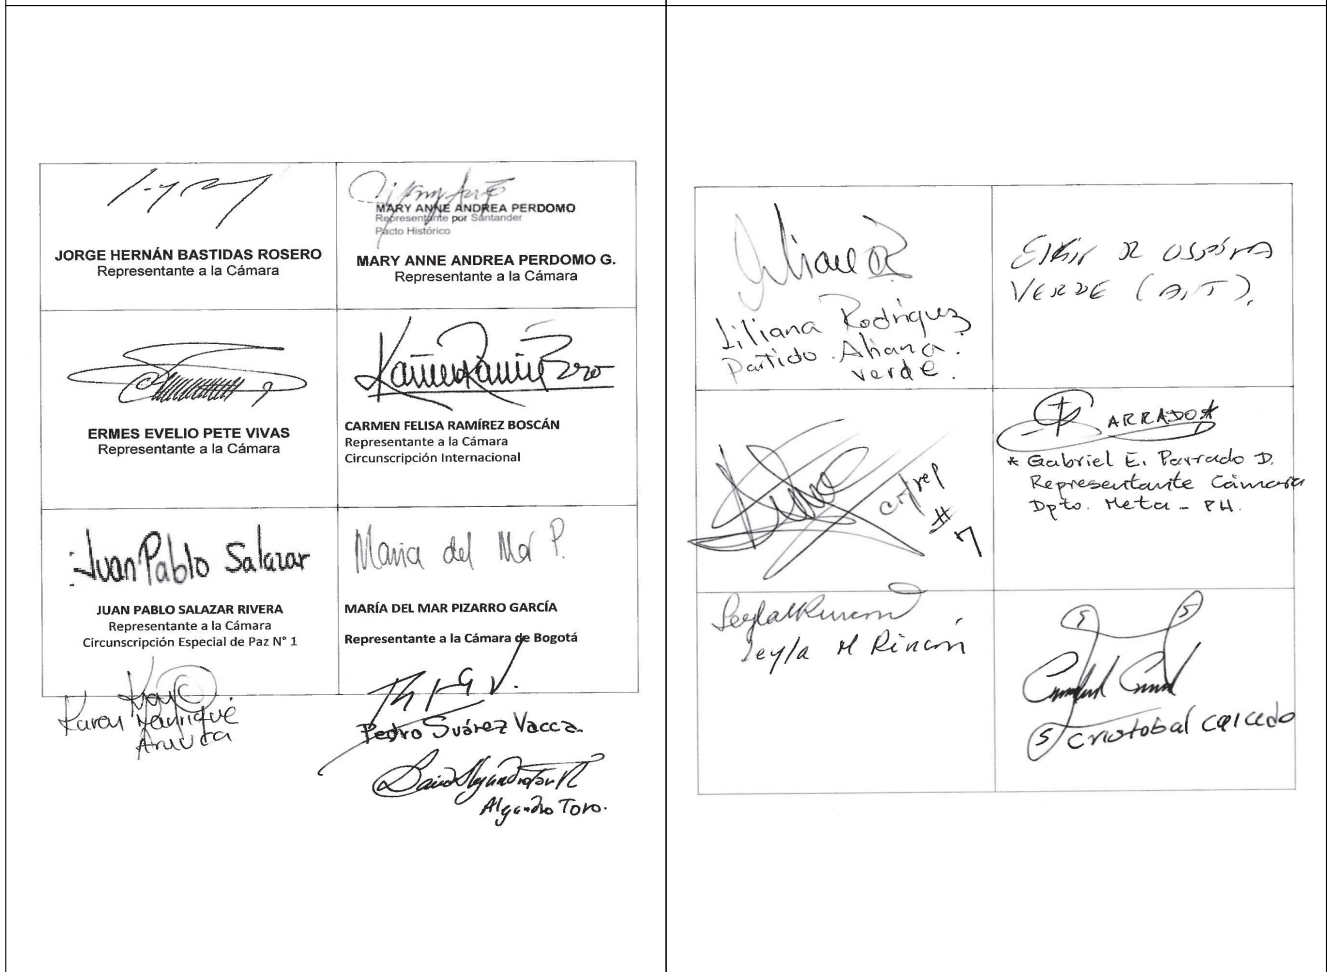 MARY ANNE ANDREA PERDOMO
Representante por Santander
Pacto Histórico
JORGE HERNÁN BASTIDAS ROSERO
Representante a la Cámara
MARY ANNE ANDREA PERDOMO G.
Representante a la Cámara
ERMES EVELIO PETE VIVAS
Representante a la Cámara
CARMEN FELISA RAMÍREZ BOSCÁN
Representante a la Cámara
Circunscripción Internacional
Juan Pablo Salazar
Maria del Mar P.
JUAN PABLO SALAZAR RIVERA
Representante a la Cámara
Circunscripción Especial de Paz N° 1
MARÍA DEL MAR PIZARRO GARCÍA
Representante a la Cámara de Bogotá
Karen Manrique
Arauca
Pedro Suárez Vacca.
Alejandro Toro.
Liliana Rodríguez
Partido Alianza
verde.
OSPINA
VERDE
ARRADO*
* Gabriel E. Parrado D.
Representante Cámara
Dpto. Meta - PH.
citrep
# 7
Leyla M Rincón
Cristobal Caicedo